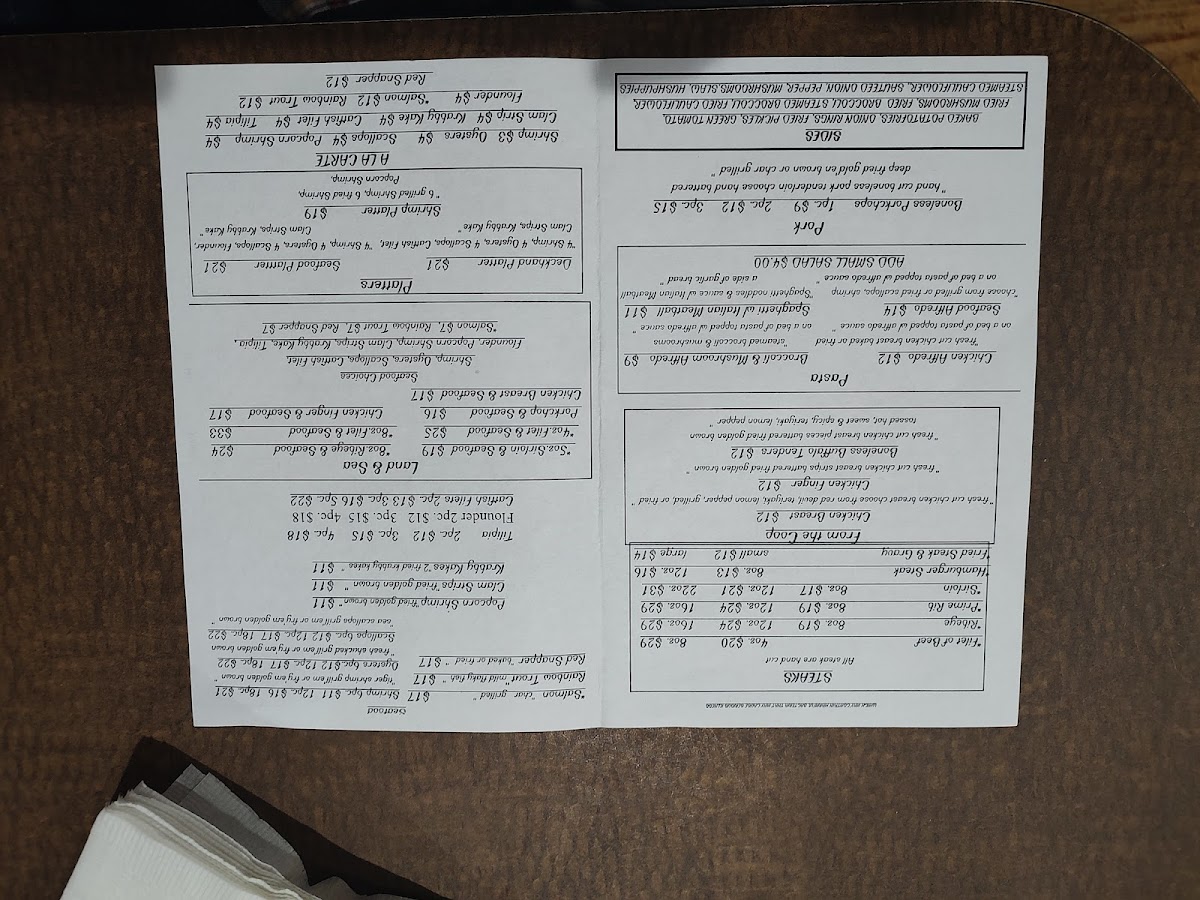 STEAKS
All steak are hand cut
*Filet of Beef 4oz. $20 8oz. $29
*Ribeye 8oz. $19 12oz. $24 16oz. $29
*Prime Rib 8oz. $19 12oz. $24 16oz. $29
*Sirloin 8oz. $17 12oz. $21 22oz. $31
*Hamburger Steak 8oz. $13 12oz. $16
*Fried Steak & Gravy small $12 large $14
From the Coop
Chicken Breast $12
"fresh cut chicken breast choose from red devil, teriyaki, lemon pepper, grilled, or fried "
Chicken Finger $12
"fresh cut chicken breast strips battered fried golden brown "
Boneless Buffalo Tenders $12
"fresh cut chicken breast pieces battered fried golden brown
tossed hot, sweet & spicy, teriyaki, lemon pepper "
Pasta
Chicken Alfredo $12 Broccoli & Mushroom Alfredo $9
"fresh cut chicken breast baked or fried "steamed broccoli & mushrooms
on a bed of pasta topped w/ alfredo sauce " on a bed of pasta topped w/ alfredo sauce "
Seafood Alfredo $14 Spaghetti w/ Italian Meatball $11
"choose from grilled or fried scallops, shrimp "Spaghetti noddles & sauce & Italian Meatball
on a bed of pasta topped w/ alfredo sauce " a side of garlic bread "
ADD SMALL SALAD $4.00
Pork
Boneless Porkchops 1pc. $9 2pc. $12 3pc. $15
"hand cut boneless pork tenderloin choose hand battered
deep fried gold en brown or char grilled
SIDES
BAKED POTATO,FRIES, ONION RINGS, FRIED PICKLES, GREEN TOMATO,
FRIED MUSHROOMS, FRIED BROCCOLI STEAMED BROCCOLI FRIED CAULIFLOWER
STEAMED CAULIFLOWER, SAUTEED ONION PEPPER, MUSHROOMS,SLAW, HUSHPUPPIES
Seafood
*Salmon "char grilled " $17 Shrimp 6pc. $11 12pc. $16 18pc. $21
Rainbow Trout "mild flaky fish" $17 "tiger shrimp grill'em or fry em golden brown
Red Snapper "baked or fried " $17 Oysters 6pc. $12 12pc. $17 18pc. $22
"fresh shucked grill'em or fry em golden brown
Scallops 6pc. $12 12pc. $17 18pc. $22
"sea scallops grill'em or fry em golden brown "
Popcorn Shrimp "fried golden brown" $11
Clam Strips "fried golden brown " $11
Krabby Kakes "2 fried krabby kakes " $11
Tilpia 2pc. $12 3pc. $15 4pc. $18
Flounder 2pc. $12 3pc. $15 4pc. $18
Catfish Filets 2pc $13 3pc $16 5pc. $22
Land & Sea
*5oz.Sirloin & Seafood $19 *8oz.Ribeye & Seafood $24
*4oz.Filet & Seafood $25 *8oz.Filet & Seafood $33
Porkchop & Seafood $16 Chicken Finger & Seafood $17
Chicken Breast & Seafood $17
Seafood Choices
Shrimp, Oysters, Scallops, Catfish Filet,
Flounder, Popcorn Shrimp, Clam Strips, Krabby Kake, Tilipia,
*Salmon $7, Rainbow Trout $7, Red Snapper $7
Platters
Deckhand Platter $21 Seafood Plattter $21
"4 Shrimp, 4 Oysters, 4 Scallops, Catfish Filet, "4 Shrimp, 4 Oysters, 4 Scallops, Flounder,
Clam Strips, Krabby Kake" Clam Strips, Krabby Kake"
Shrimp Platter $19
" 6 grilled Shrimp, 6 fried Shrimp,
Popcorn Shrimp,
A LA CARTE
Shrimp $3 Oysters $4 Scallops $4 Popcorn Shrimp $4
Clam Strip $4 Krabby Kake $4 Catfish Filet $4 Tilipia $4
Flounder $4 *Salmon $12 Rainbow Trout $12
Red Snapper $12